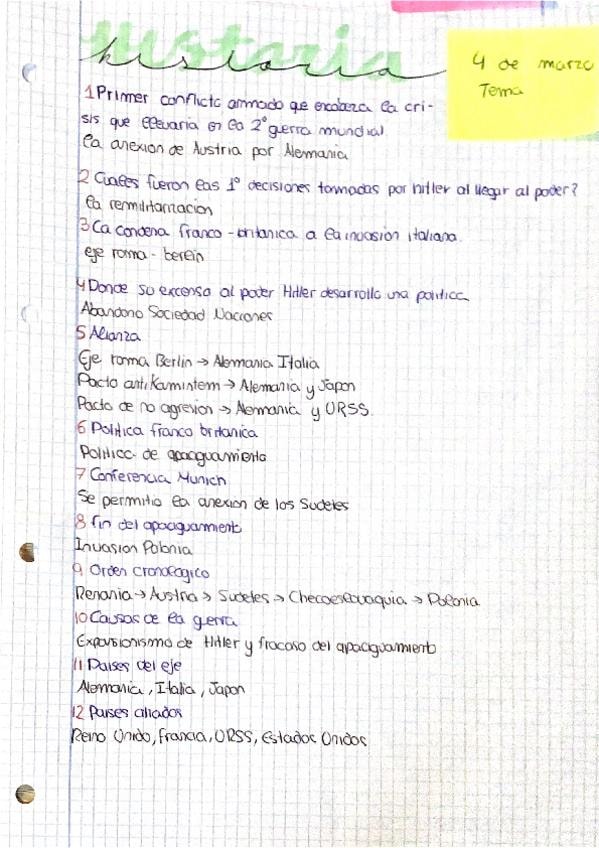 historia
4 de marzo
Tema
1 Primer conflicto armado que encabeza la cri-
sis que llevaria en la 2º guerra mundial
la anexion de Austria por Alemania
2 Cuales fueron las 1º decisiones tommadas por hitler al llegar al poder?
la remmilitarizacion
3 La condena franco-britanica a la invasion italiana.
eje roma-berlin
4 Donde su excenso al poder Hitler desarrollo una politica
Abandono Sociedad Naciones
5 Alianza
Eje roma Berlin → Alemania Italia
Pacto antikamintem → Alemania y Japon
Pacto de no agresion → Alemania y URSS.
6 Politica franco britanica
Politica de apaciguamiento
7 Conferencia Munich
Se permitio la anexion de los Sudetes
8 fin del apaciguamiento
Invasion Polonia
9 Orden cronologico
Renania → Austria → Sudetes → Checoeslovaquia → Polonia
10 Causas de la guerra
Expansionismo de Hitler y fracaso del apaciguamiento
11 Paises del eje
Alemania, Italia, Japon
12 Paises aliados
Reino Unido, Francia, URSS, Estados Unidos